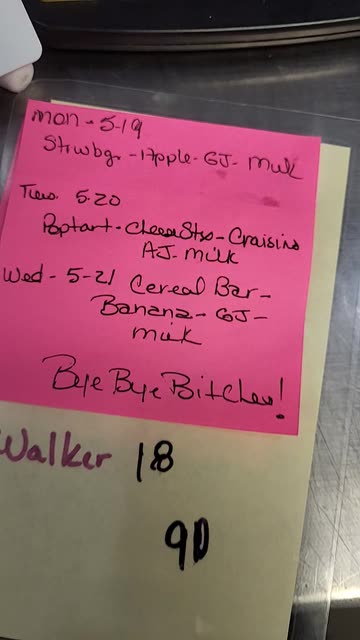 Mon - 5-19
Strwbg - Apple - GJ - Milk
Tues. 5.20
Poptart - CheeseStx - Craisins
AJ - Milk
Wed - 5-21 Cereal Bar -
Banana - GJ -
milk
Bye Bye Bitches!
Walker 18
90